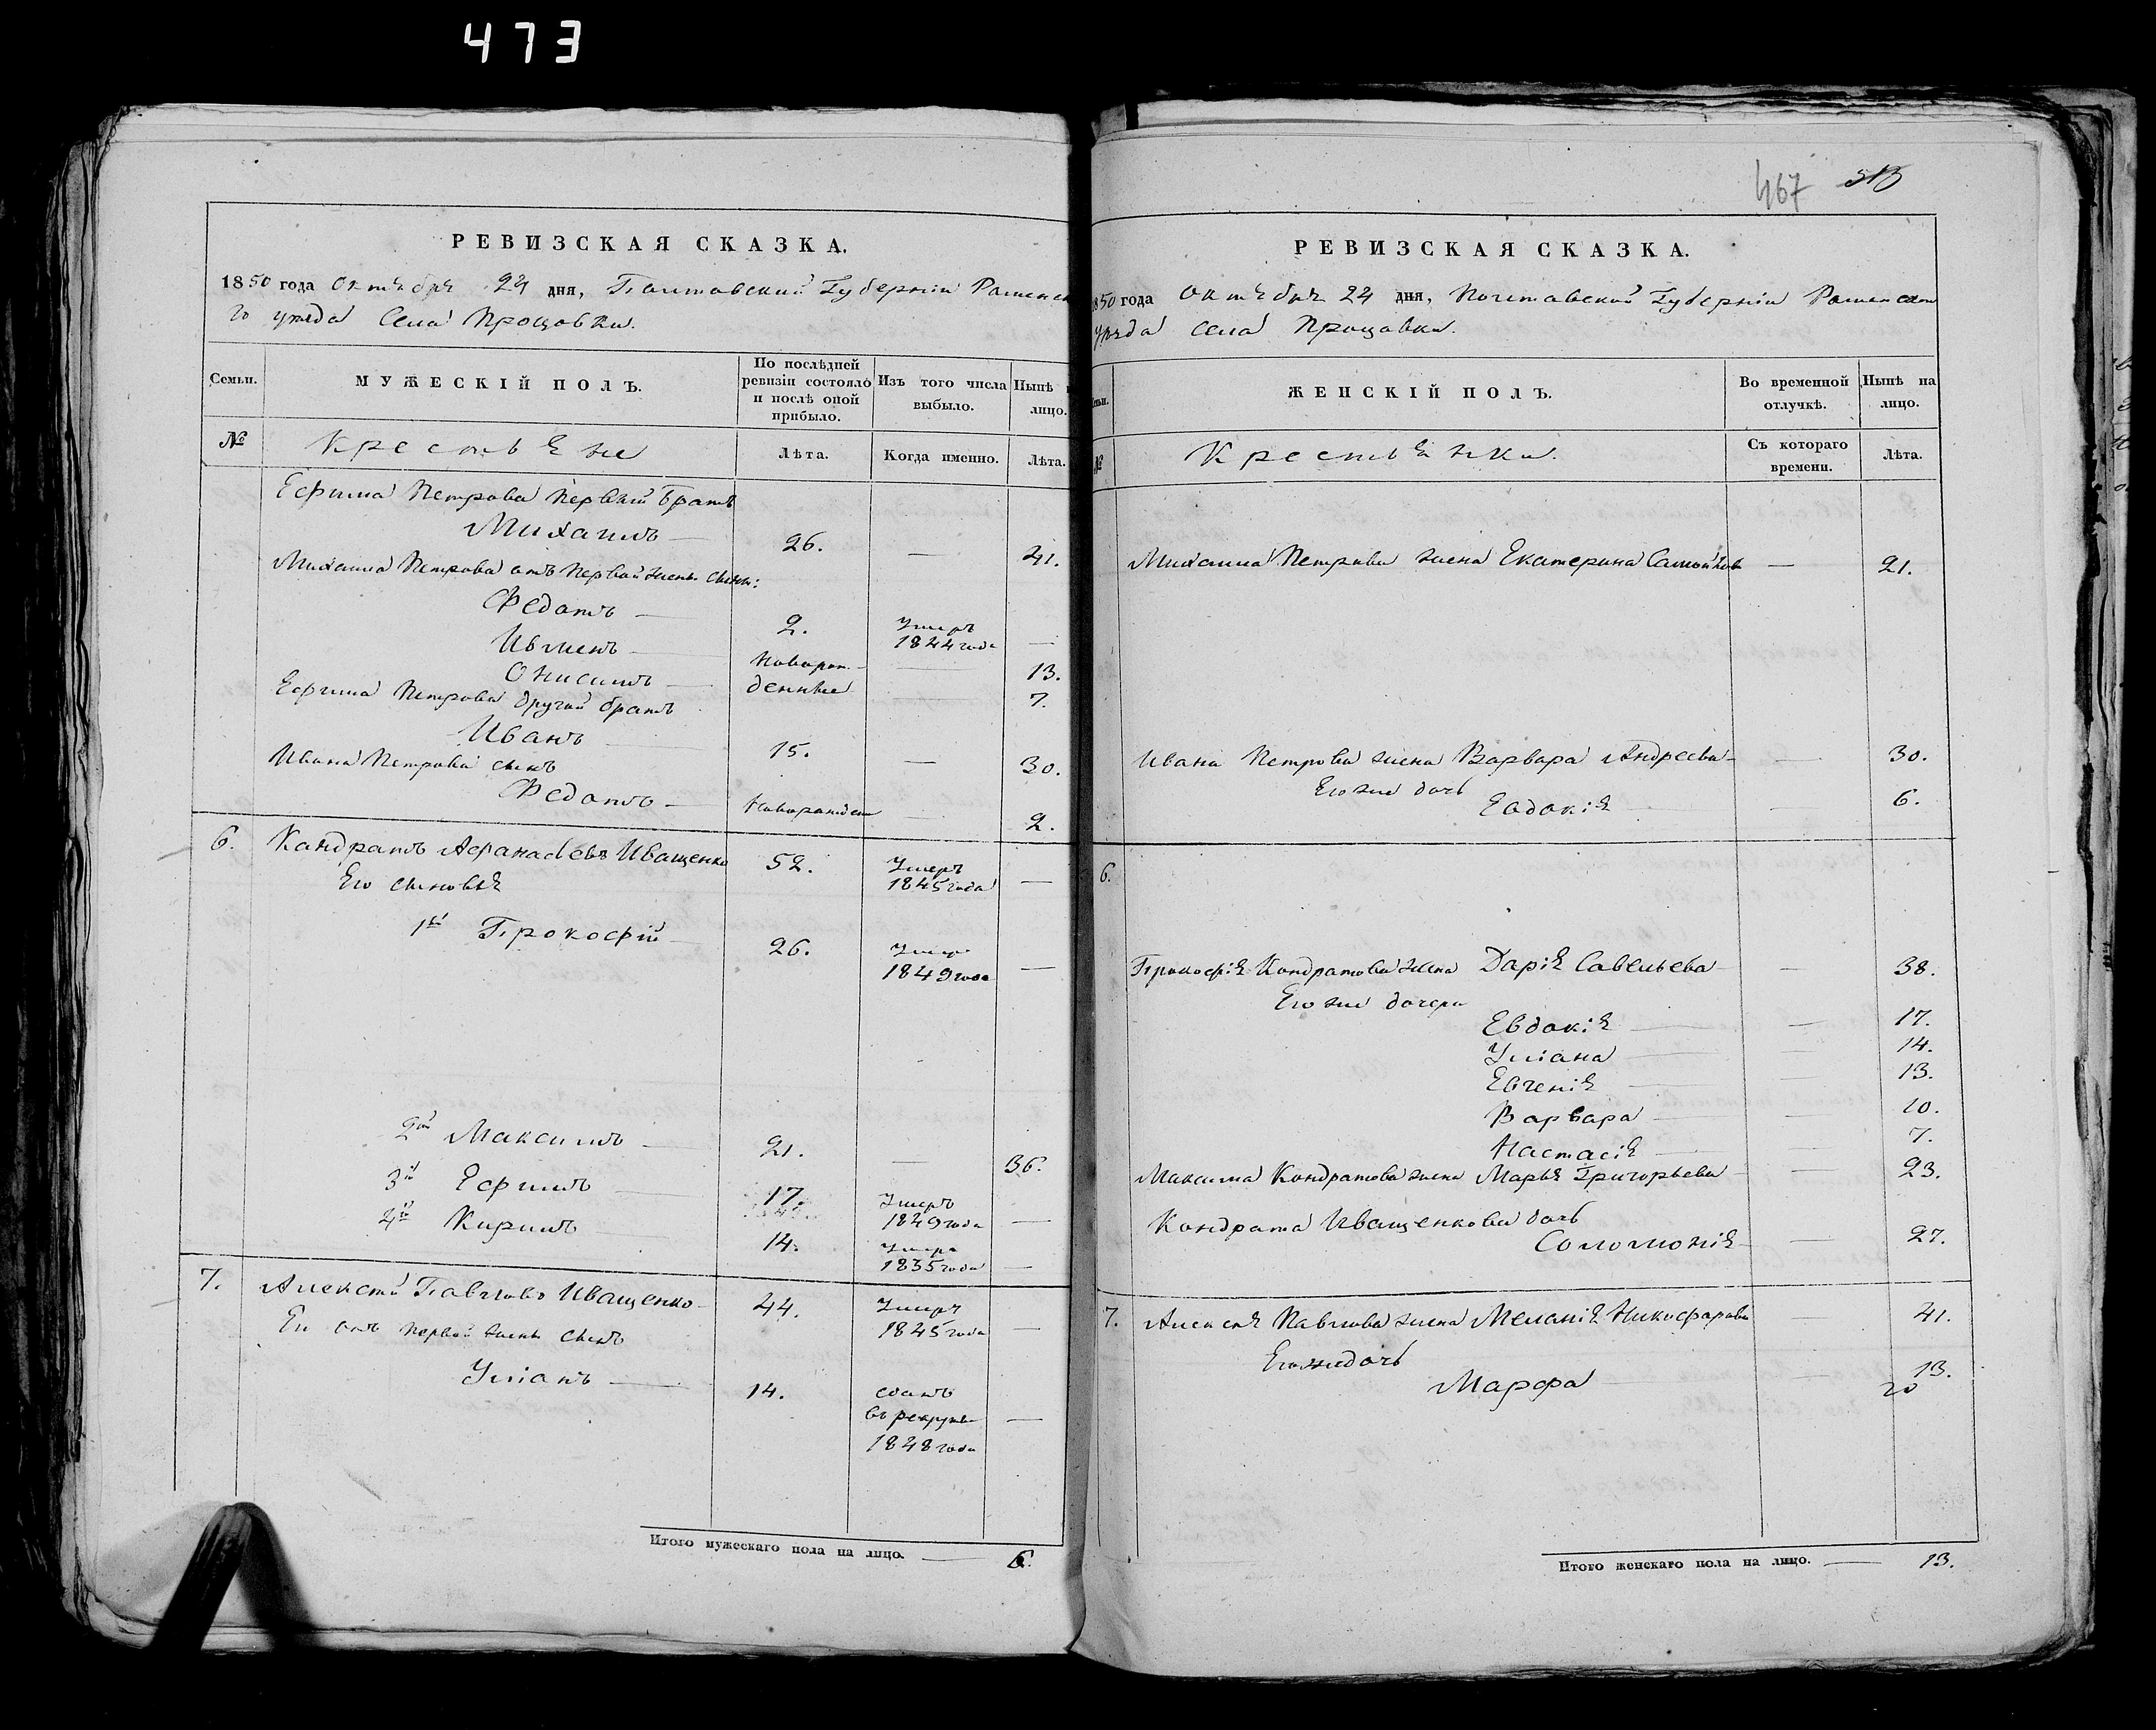 473
РЕВИЗСКАЯ СКАЗКА.
1850 года Октября 24 дня, Полтавской Губерніи Роменска
го уѣзда Села Процовки.
Семьи. МУЖЕСКІЙ ПОЛЪ. По послѣдней ревизіи состояло и послѣ оной прибыло. Изъ того числа выбыло. Нынѣ на лицо.
№ Крестьяне Лѣта. Когда именно. Лѣта.
Ефима Петрова первый братъ
Михаилъ — 26. — 41.
Михаила Петрова отъ первой жены сыны:
Федотъ — 2. Умеръ 1844 года —
Ивменъ — Новорож- — 13.
Онисимъ — денные — 7.
Ефима Петрова другий братъ
Иванъ — 15. — 30.
Ивана Петрова сынъ
Федотъ — Новорожден — 2.
6. Кандратъ Афанасьевъ Иващенко 52. Умеръ 1845 года —
Его сыновья
1й Прокофій — 26. Умер 1849 года —
2й Максимъ — 21. — 36.
3й Ефимъ — 17. Умеръ 1849 года —
4й Кирилъ — 14. Умеръ 1835 года —
7. Алексей Павловъ Иващенко 44. Умеръ 1845 года —
Ег отъ первой жены сынъ
Уліанъ — 14. сданъ въ рекруты 1848 года —
Итого мужескаго пола на лицо. — 6.
467 513
РЕВИЗСКАЯ СКАЗКА.
1850 года Октября 24 дня, Полтавской Губерніи Роменскаго
уѣзда села Процовки.
№ ЖЕНСКІЙ ПОЛЪ. Во временной отлучкѣ. Нынѣ на лицо.
Крестьянки. Съ котораго времени. Лѣта.
Михаила Петрова жена Екатерина Самойлова — 21.
Ивана Петрова жена Варвара Андреева — 30.
Его же дочь
Евдокія — 6.
6.
Прокофія Кондратова жена Дарія Савельева — 38.
Его же дочери
Евдокія — 17.
Уліана — 14.
Евгенія — 13.
Варвара — 10.
Настасія — 7.
Максима Кондратова жена Марья Григорьева — 23.
Кондрата Иващенкова дочь
Соломонія — 27.
7. Алексея Павлова жена Меланія Никофарова — 41.
Его же дочь
Марфа — 13.
20
Итого женскаго пола на лицо. — 13.